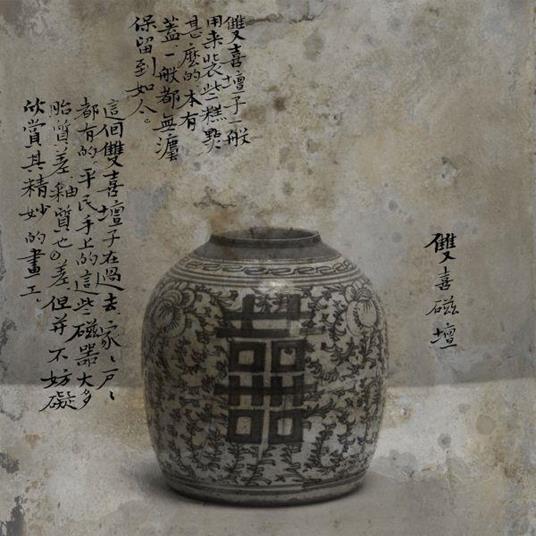 雙喜磁壇
雙喜壇子一般
用来裝些糕點
甚麽的本有
蓋一般都無灋
保留到如今。
這個雙喜壇子在過去、家〻戶〻
都有的。平民手上的這些磁器大多
胎質差、釉質也差、但并不妨礙
欣賞其精妙的畫工。
囍